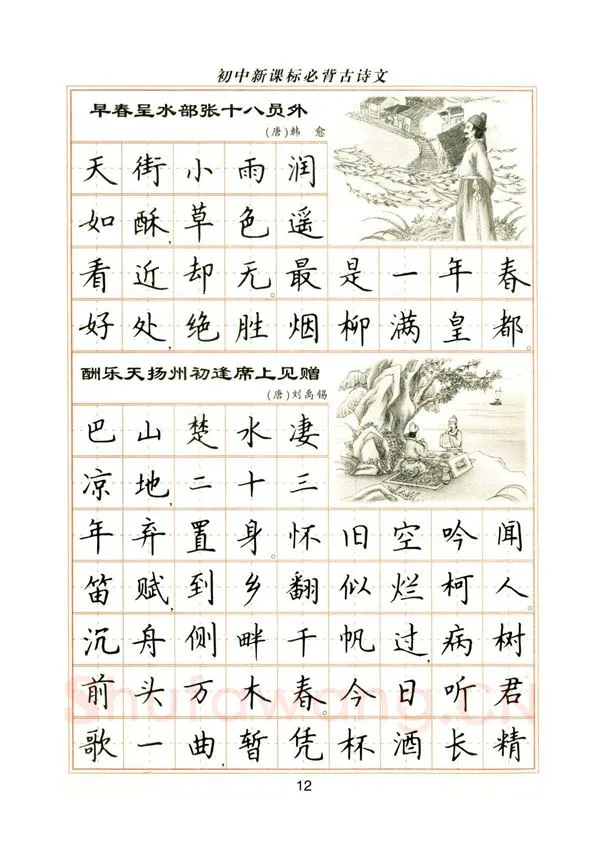 初中新课标必背古诗文
早春呈水部张十八员外
(唐)韩 愈
天街小雨润
如酥,草色遥
看近却无。最是一年春
好处,绝胜烟柳满皇都。
酬乐天扬州初逢席上见赠
(唐)刘禹锡
巴山楚水凄
凉地,二十三
年弃置身。怀旧空吟闻
笛赋,到乡翻似烂柯人。
沉舟侧畔千帆过,病树
前头万木春。今日听君
歌一曲,暂凭杯酒长精
Shufawang.CN
12